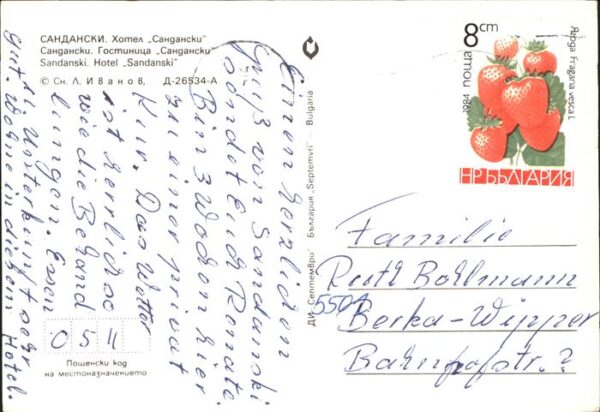 САНДАНСКИ. Хотел „Сандански"
Сандански. Гостиница „Сандански"
Sandanski. Hotel „Sandanski"
© Сн. Л. Иванов, Д-26534-А
Einen herzlichen
Gruß von Sandanski
sendet Euch Renate.
Bin 3 Wochen hier
zu einer privat
Kur. Das Wetter
ist herrlich so
wie die Behand
lungen. Essen
u. Unterkunft sehr
gut. Wohne in diesem Hotel.
0511
Пощенски код
на местоназначението
ДИ „Септември" България „Septemvri" Bulgaria
8 ст
поща
1984
Ягода Fragaria vesca L.
НР БЪЛГАРИЯ
Familie
Ruth Bollmann
5501
Berka-Wipper
Bahnhofstr. 7